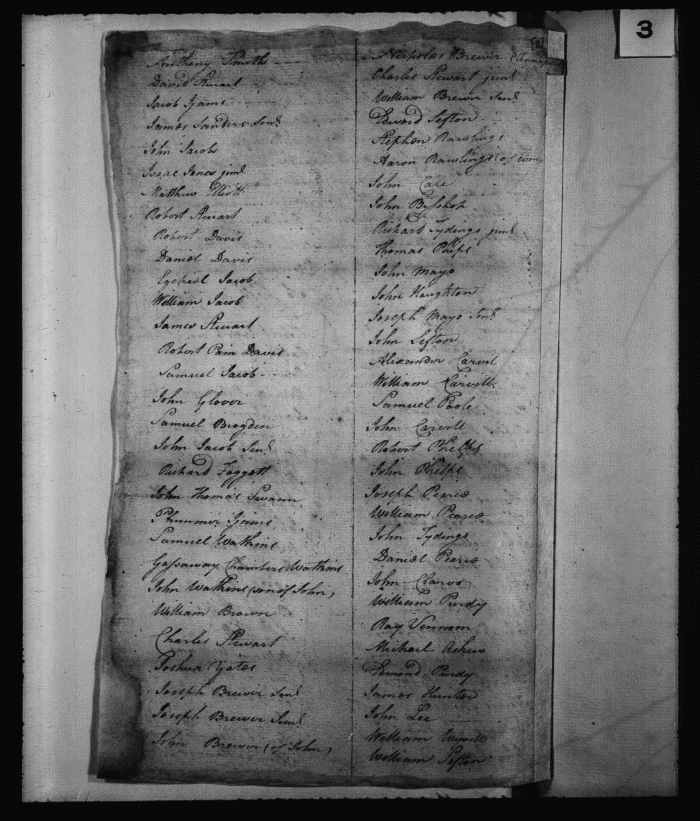 3
Anthony Smith
David Stuart
Jacob Ijams
James Sanders Senr
John Jacobs
Isaac Jones junr
Matthew Elliott
Robert Stuart
Robert Davis
Daniel Davis
Ezekiel Jacob
William Jacob
James Stuart
Robert Pain Davis
Samuel Jacob
John Glover
Samuel Brogden
John Jacob Senr
Richard Foggett
John Thomas Swann
Plummer Ijams
Samuel Watkins
Gassaway Chambers Watkins
John Watkins (son of John)
William Brown
Charles Stewart
Joshua Yates
Joseph Brewer Senr
Joseph Brewer Junr
John Brewer (of John)
Nicholas Brewer
Charles Stewart junr
William Brewer Senr
Edward Sefton
Stephen Rawlings
Aaron Rawlings (of
John Cale
John Bisshop
Richard Tydings junr
Thomas Phips
John Mayo
John Haughton
Joseph Mayo Senr
John Sefton
Alexander Carvil
William Carvill
Samuel Poole
John Carvill
Robert Phelps
John Phelps
Joseph Pearce
William Pearce
John Tydings
Daniel Pearce
John Clarvo
William Purdy
Ray Vennom
Michael Askew
Edmond Purdy
James Hunter
John Lee
William
William Sefton